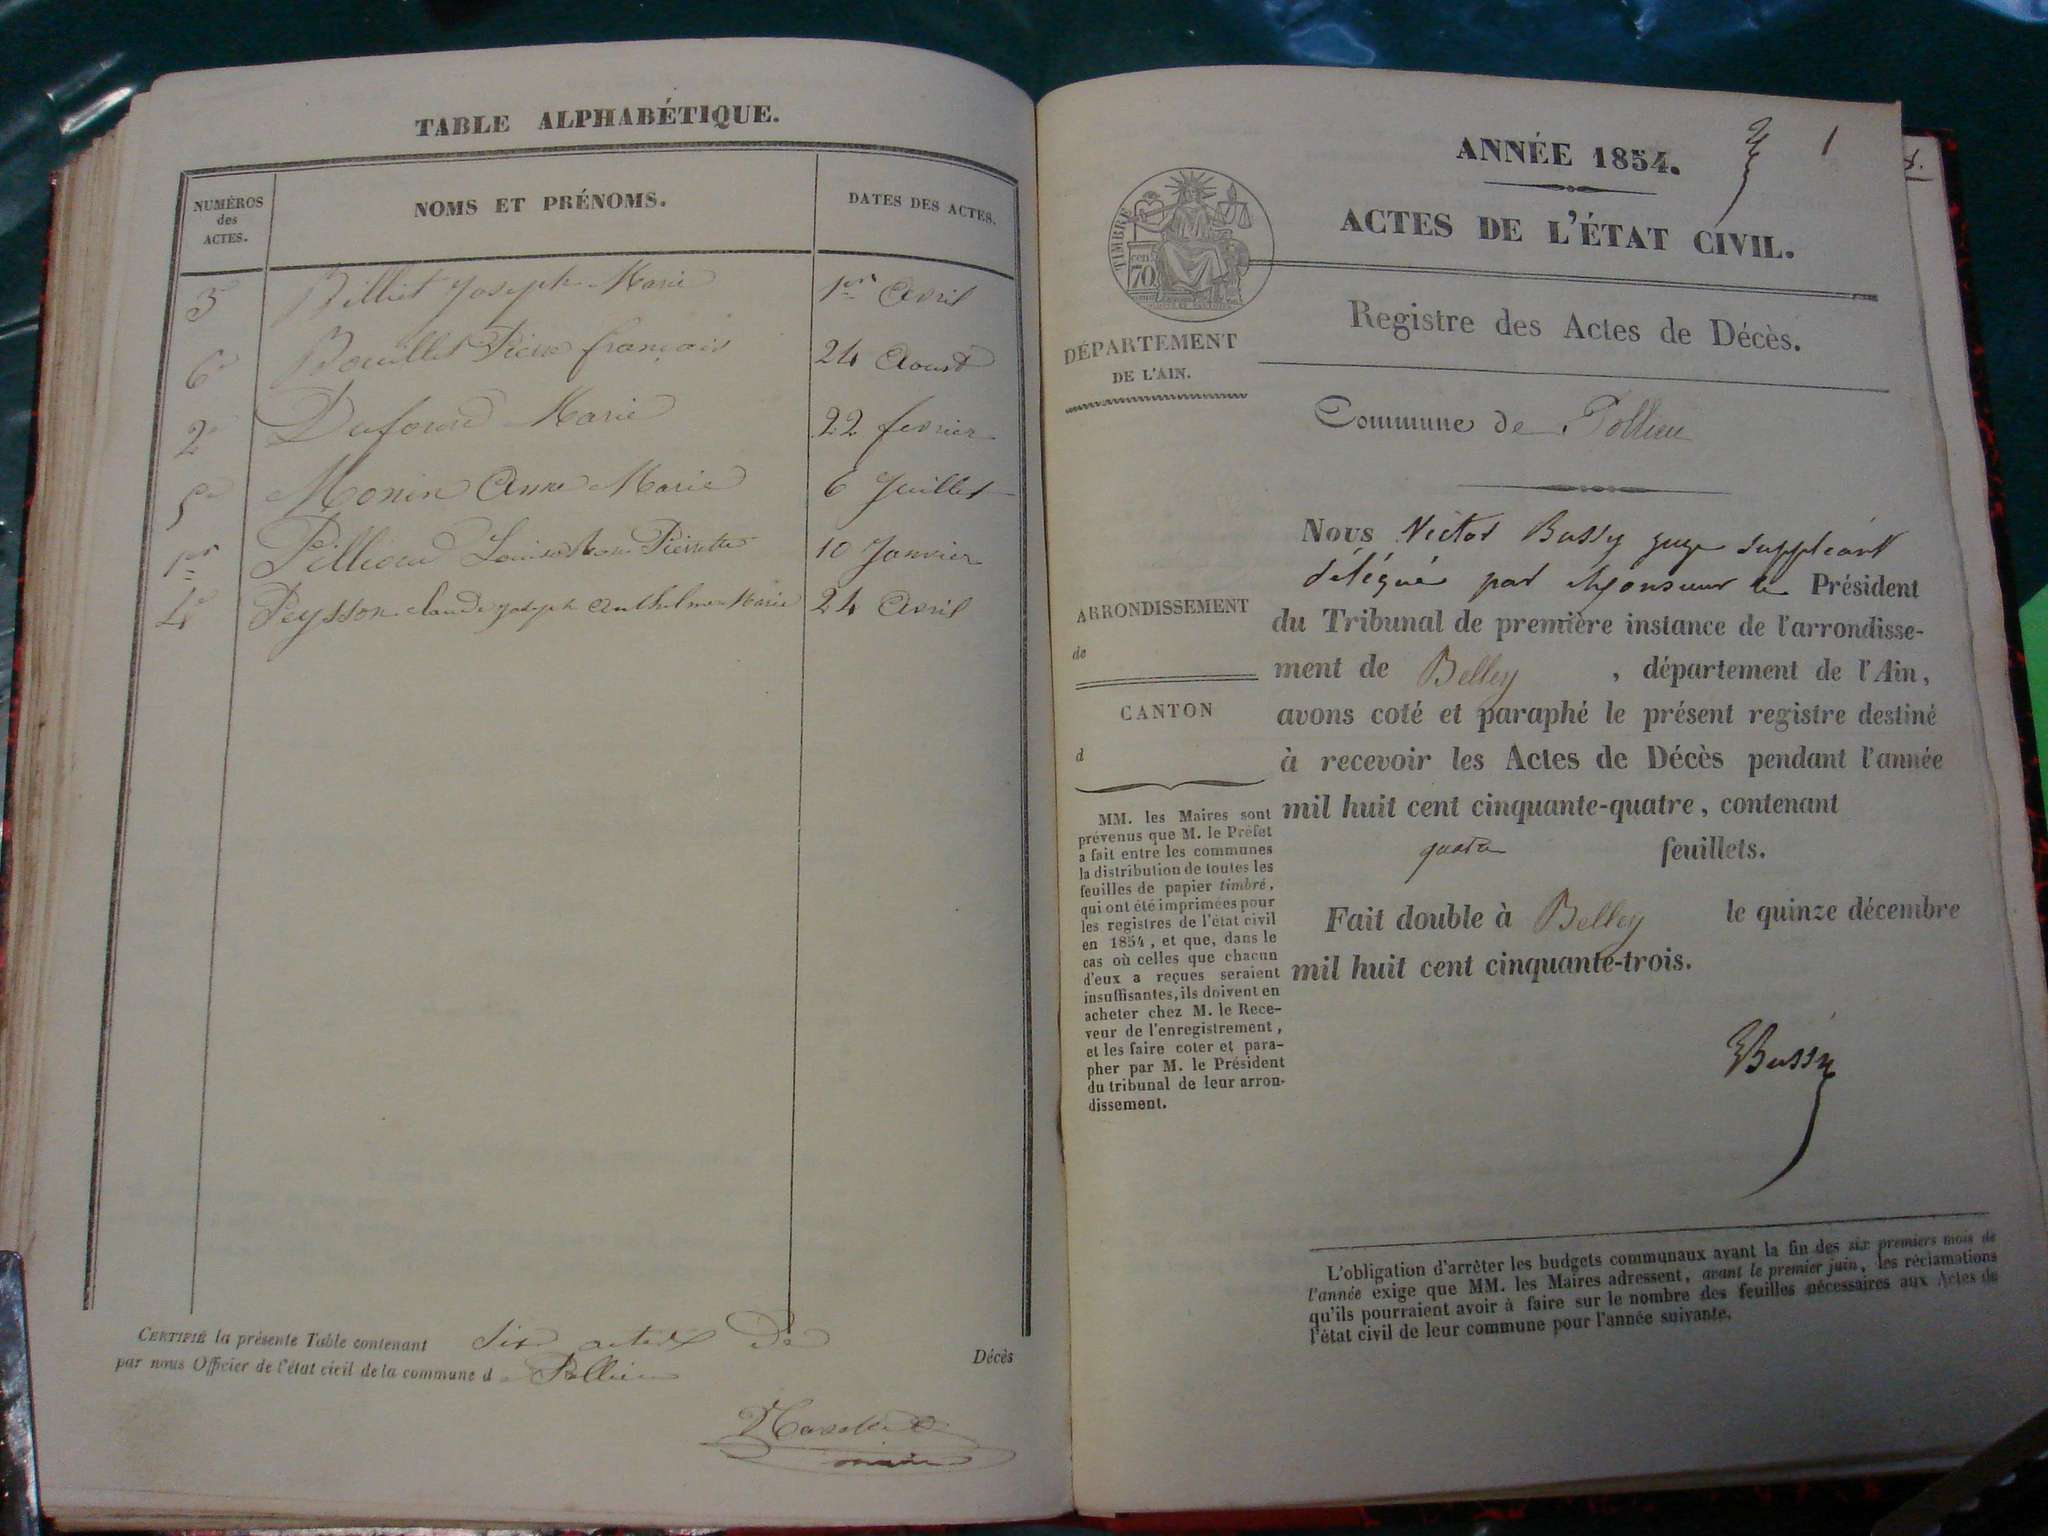 TABLE ALPHABÉTIQUE.
NUMÉROS des ACTES. NOMS ET PRÉNOMS. DATES DES ACTES.
3 Billiet Joseph Marie 1er Avril
6 Bouillet Pierre françois 24 Aoust
2 Dufour Marie 22 fevrier
5 Monin Anne Marie 6 Juillet
1er Pierrette 10 Janvier
4 Peysson claude joseph anthelme Marie 24 Avril
CERTIFIÉ la présente Table contenant six actes de Décès
par nous Officier de l'état civil de la commune de Pollieu
maire
1
ANNÉE 1854.
ACTES DE L'ÉTAT CIVIL.
TIMBRE
cen
70
Registre des Actes de Décès.
DÉPARTEMENT
DE L'AIN.
Commune de Pollieu
ARRONDISSEMENT
de
CANTON
d
MM. les Maires sont
prévenus que M. le Préfet
a fait entre les communes
la distribution de toutes les
feuilles de papier timbré,
qui ont été imprimées pour
les registres de l'état civil
en 1854, et que, dans le
cas où celles que chacun
d'eux a reçues seraient
insuffisantes, ils doivent en
acheter chez M. le Rece-
veur de l'enregistrement,
et les faire coter et para-
pher par M. le Président
du tribunal de leur arron-
dissement.
Nous Victor Bussy juge suppléant
délégué par Monsieur le Président
du Tribunal de première instance de l'arrondisse-
ment de Belley, département de l'Ain,
avons coté et paraphé le présent registre destiné
à recevoir les Actes de Décès pendant l'année
mil huit cent cinquante-quatre, contenant
quatre feuillets.
Fait double à Belley le quinze décembre
mil huit cent cinquante-trois.
VBussy
L'obligation d'arrêter les budgets communaux avant la fin des six premiers mois de
l'année exige que MM. les Maires adressent, avant le premier juin, les réclamations
qu'ils pourraient avoir à faire sur le nombre des feuilles nécessaires aux Actes de
l'état civil de leur commune pour l'année suivante.